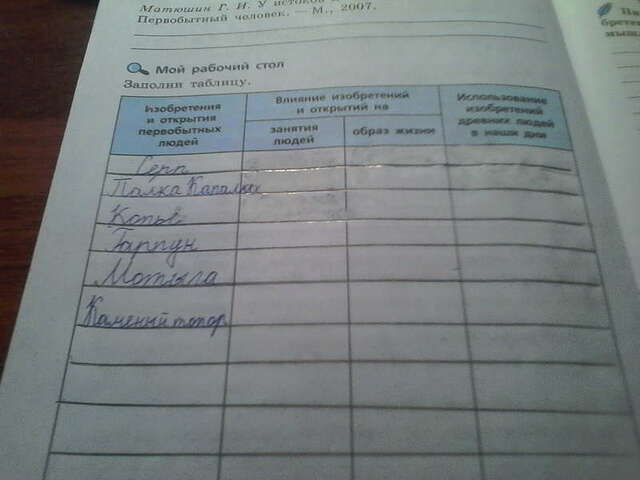 Матюшин Г. И. У истоков
Первобытный человек. — М., 2007.
Мой рабочий стол
Заполни таблицу.
Изобретения и открытия первобытных людей
Влияние изобретений и открытий на
занятия людей
образ жизни
Использование изобретений древних людей в наши дни
Серп
Палка Капалка
Копьё
Гарпун
Мотыга
Каменый топор